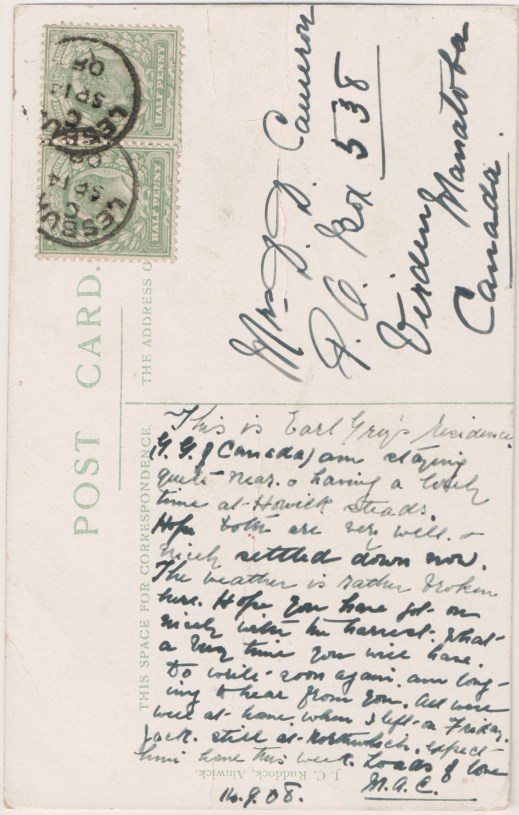 POST CARD.
THE ADDRESS O
THIS SPACE FOR CORRESPONDENCE.
HALF PENNY
HALF PENNY
LESBU
C
SP 14
08
LESBU
C
SP 14
08
Mrs D. D. Cameron
P. O. Box 538
Virden Manatoba
Canada.
This is Earl Grey's residence
(G. G. of Canada) am staying
quite near. & having a lovely
time at Howick steads.
Hope both are very well. &
nicely settled down now.
The weather is rather broken
here. Hope you have got on
nicely with the harvest. What
a busy time you will have.
Do write soon again. am long-
ing to hear from you. All were
well at home. when I left on Friday.
Jack still at expect
him home this week. Loads of love
14.9.08. M.A.C.
J. C. Ruddock, Alnwick.